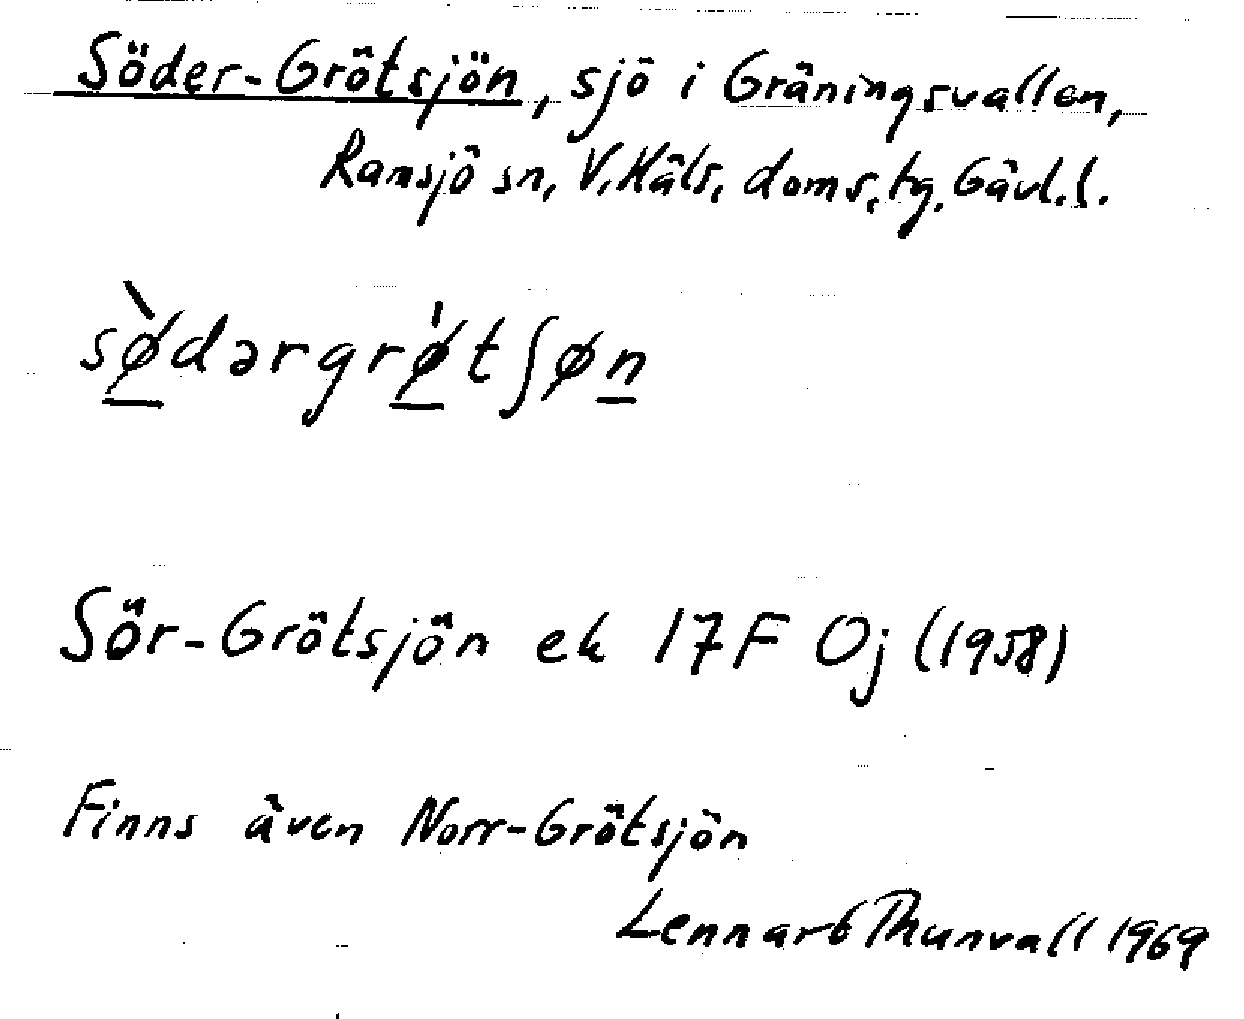 Söder-Grötsjön, sjö i Gräningsvallen,
Ramsjö sn, V. Häls. doms. tg. Gävl. l.
sø̀dərgrø̍tʃøn
Sör-Grötsjön ek 17F Oj (1958)
Finns även Norr-Grötsjön
Lennart Thunvall 1969